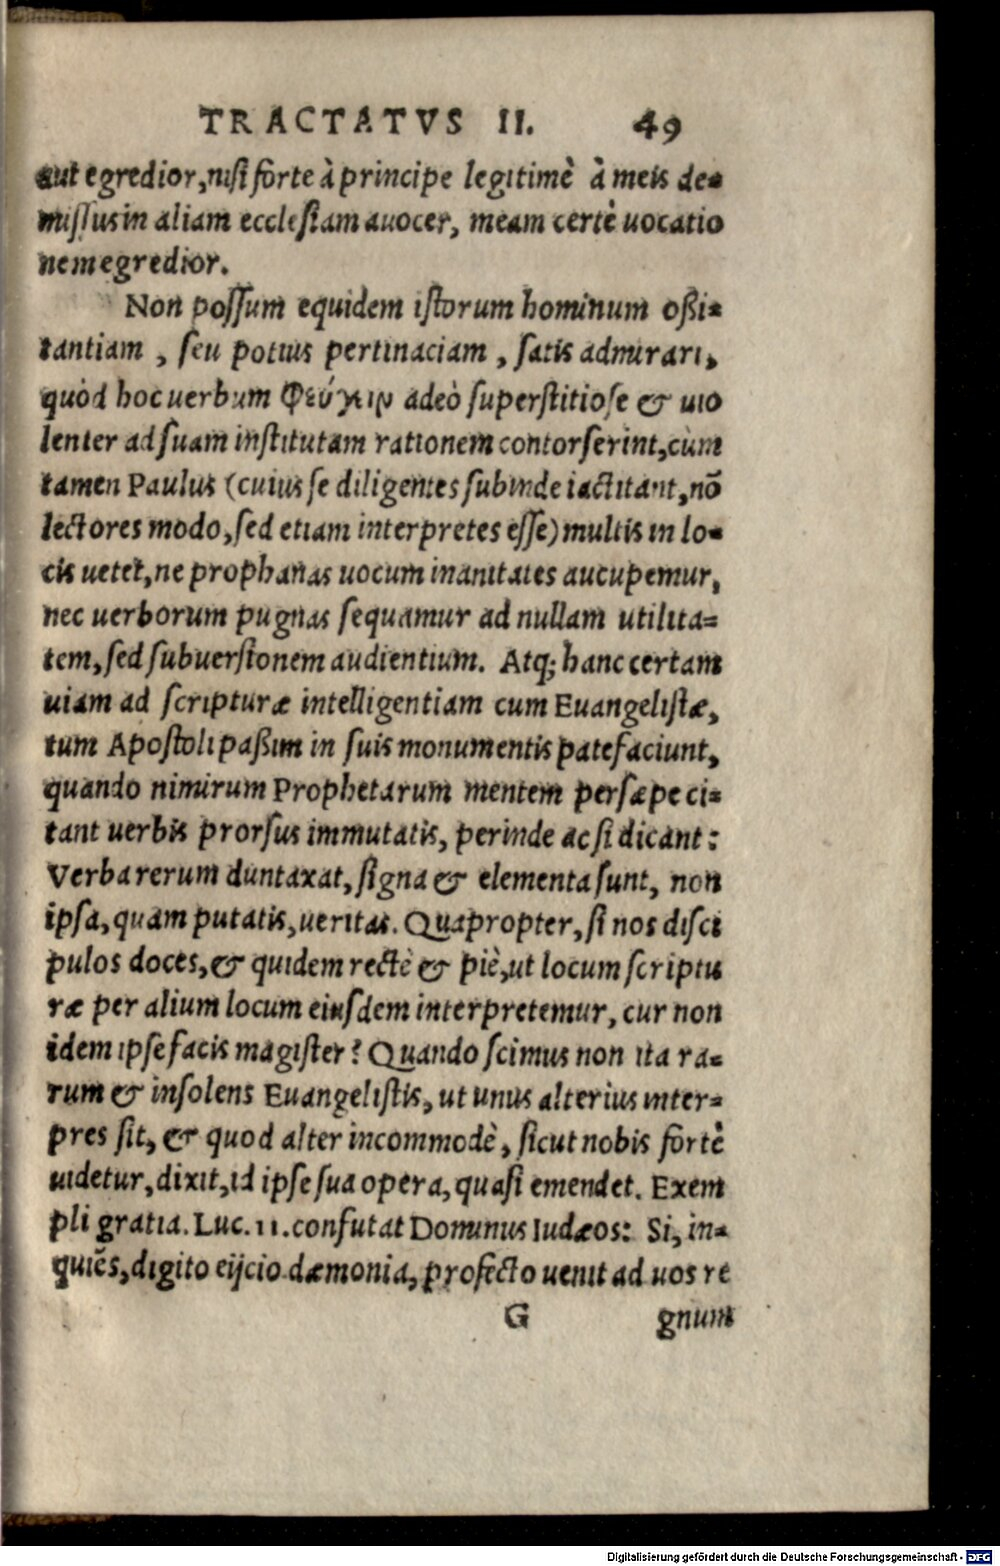 TRACTATVS II. 49
aut egredior, nisi forte à principe legitimè à meis de-
missus in aliam ecclesiam auocer, meam certè uocatio
nem egredior.
Non possum equidem istorum hominum oßi-
tantiam, seu potius pertinaciam, satis admirari,
quòd hoc uerbum Φεύγειν adeò superstitiose & uio
lenter ad suam institutam rationem contorserint, cùm
tamen Paulus (cuius se diligentes subinde iactitant, nõ
lectores modo, sed etiam interpretes esse) multis in lo-
cis uetet, ne prophanas uocum inanitates aucupemur,
nec uerborum pugnas sequamur ad nullam utilita-
tem, sed subuersionem audientium. Atq; hanc certam
uiam ad scripturæ intelligentiam cum Euangelistæ,
tum Apostoli paßim in suis monumentis patefaciunt,
quando nimirum Prophetarum mentem persæpe ci-
tant uerbis prorsus immutatis, perinde ac si dicant:
Verba rerum duntaxat, signa & elementa sunt, non
ipsa, quam putatis, ueritas. Quapropter, si nos disci
pulos doces, & quidem rectè & piè, ut locum scriptu
ræ per alium locum eiusdem interpretemur, cur non
idem ipse facis magister? Quando scimus non ita ra-
rum & insolens Euangelistis, ut unus alterius inter-
pres sit, & quod alter incommodè, sicut nobis fortè
uidetur, dixit, id ipse sua opera, quasi emendet. Exem
pli gratia. Luc. 11. confutat Dominus Iudæos: Si, in-
quiẽs, digito eijcio dæmonia, profecto uenit ad uos re
G gnum
Digitalisierung gefördert durch die Deutsche Forschungsgemeinschaft - DFG